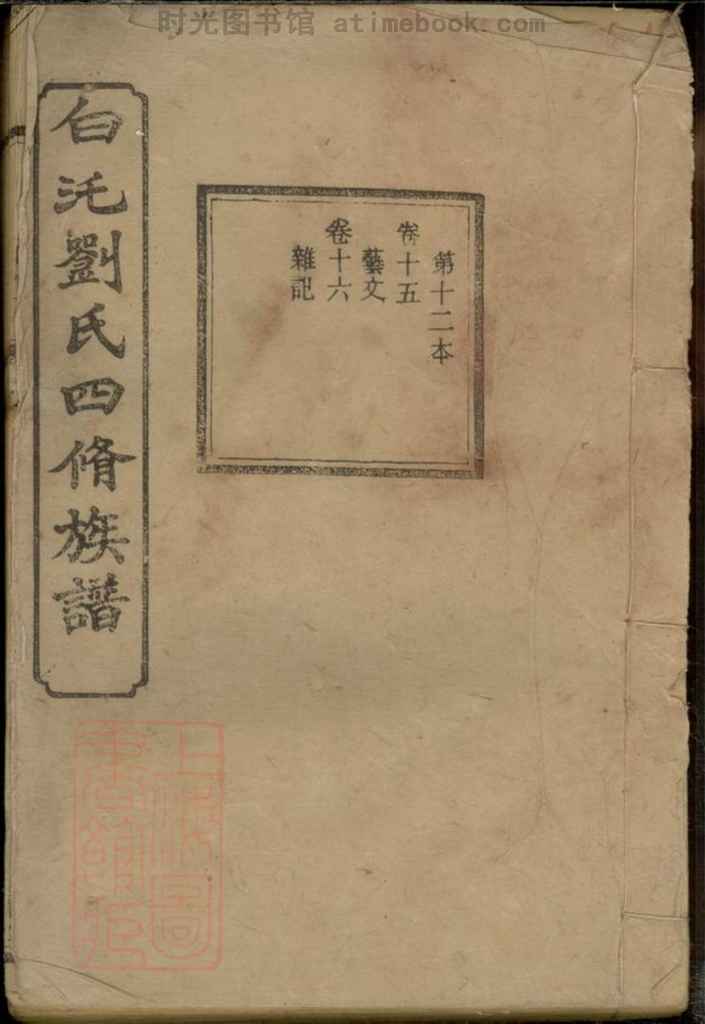 时光图书馆 atimebook.com
白沌劉氏四脩族譜
第十二本
卷十五
藝文
卷十六
雜記